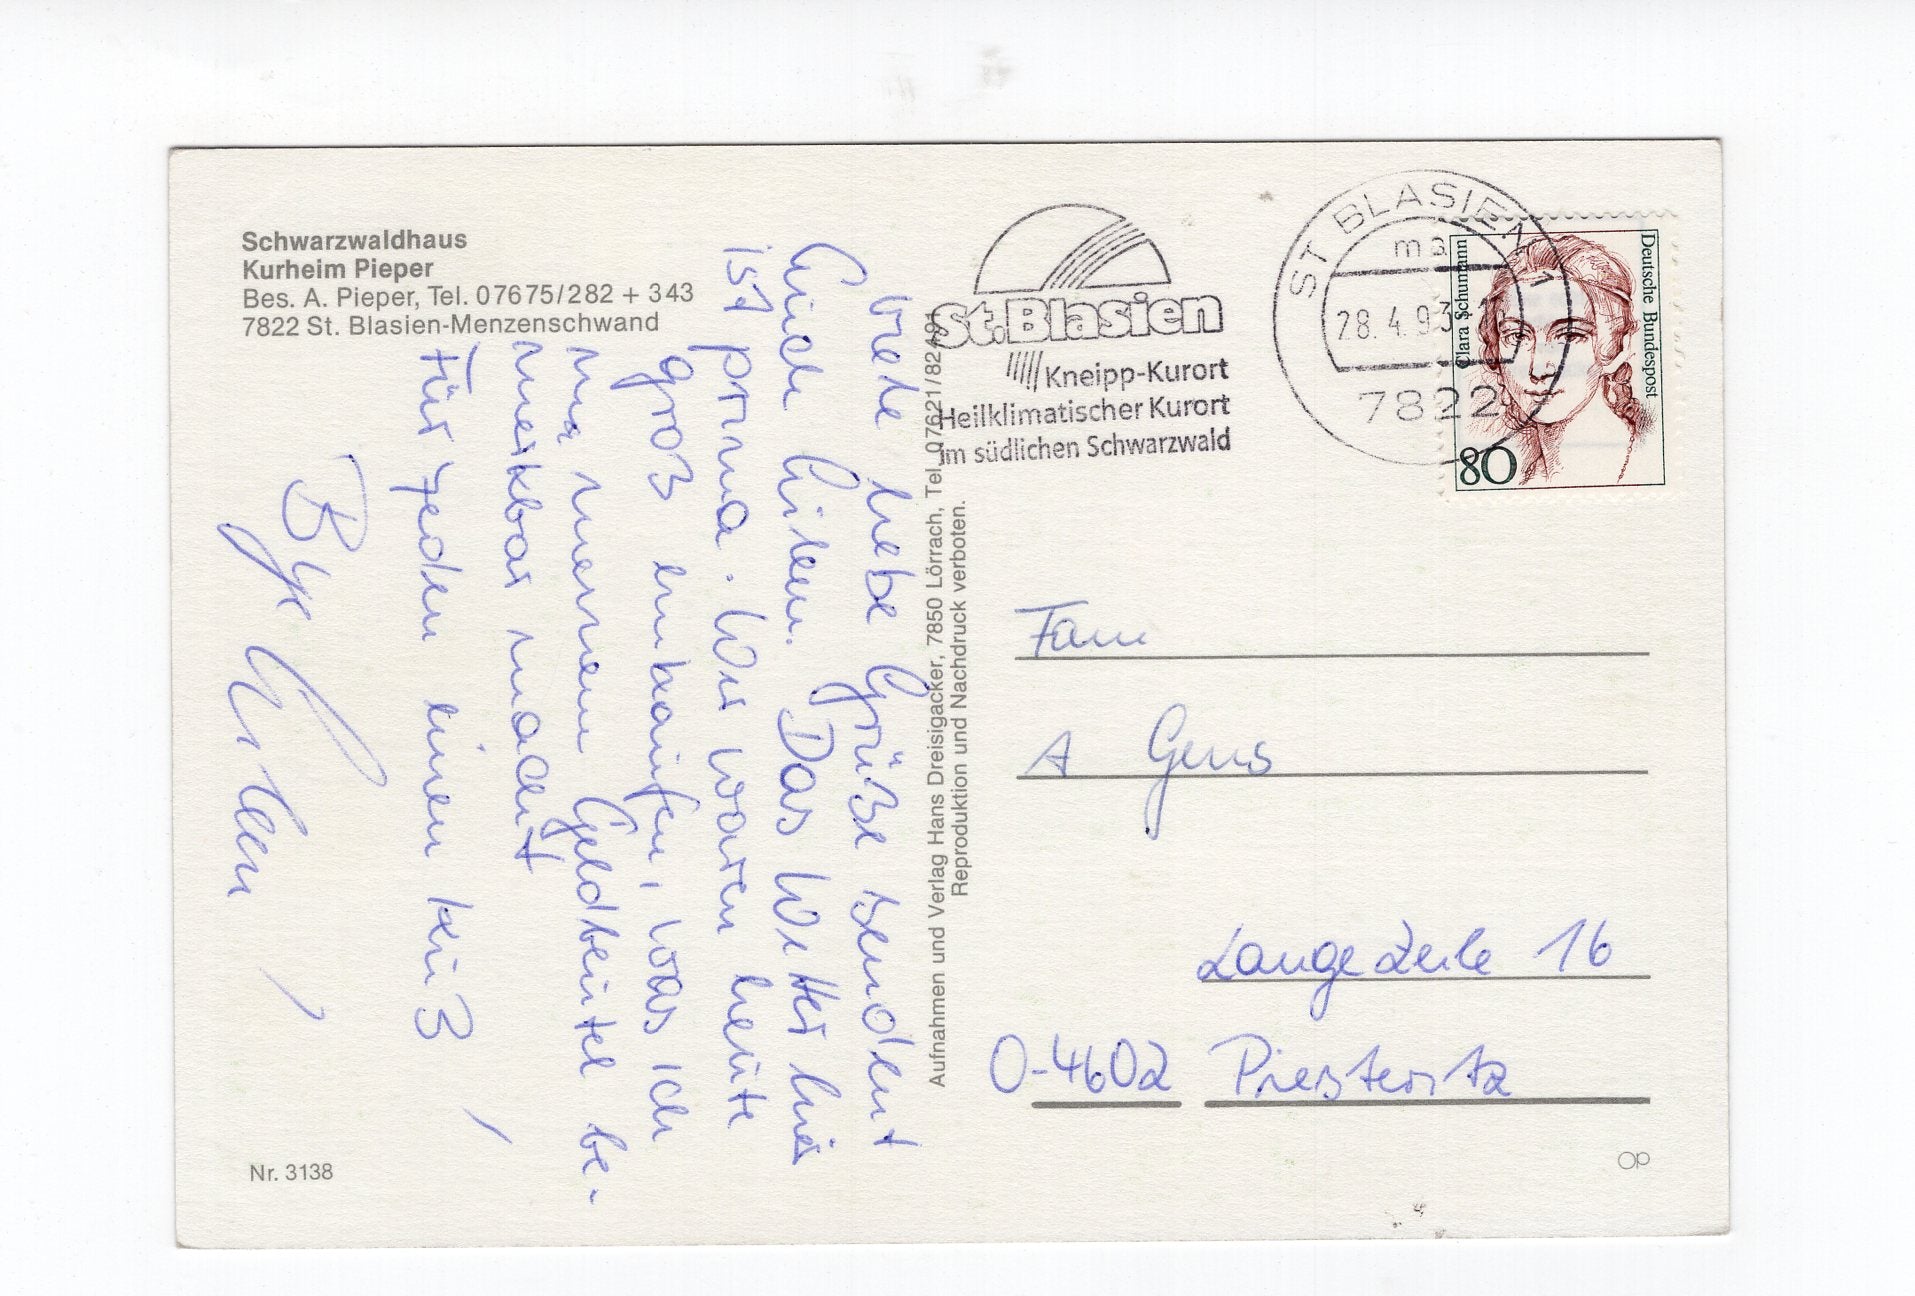 Schwarzwaldhaus
Kurheim Pieper
Bes. A. Pieper, Tel. 07675/282 + 343
7822 St. Blasien-Menzenschwand
Viele liebe Grüße sendet
Euch Eileen. Das Wetter hier
ist prima. Wir waren heute
groß einkaufen, was ich
an meinem Geldbeutel be-
merkbar macht
Für jeden einen Kuß
Bye
Nr. 3138
Aufnahmen und Verlag Hans Dreisigacker, 7850 Lörrach, Tel. 07621/82491
Reproduktion und Nachdruck verboten.
St. Blasien
Kneipp-Kurort
Heilklimatischer Kurort
im südlichen Schwarzwald
ST BLASIEN 1
ma
28.4.93
7822
Deutsche Bundespost
Clara Schumann
80
Fam
A Gens
Lange Zeile 16
O-4602 Piesteritz